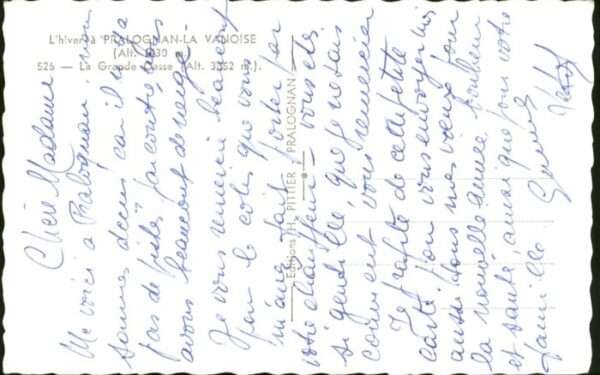 L'hiver à PRALOGNAN-LA VANOISE
526 — La Grande Casse (Alt. 3.852 m.).
Editions TH. PITTIER - PRALOGNAN
Chère Madame
Me voici à Pralognan, nous
sommes déçus car il n'y a
pas de pistes par contre nous
avons beaucoup de neige.
Je vous remercie beaucoup
pour le colis que vous
m'avez fait porter par
votre chauffeur - vous êtes
si gentille, que je ne sais
comment vous remercier
Je profite de cette petite
carte pour vous envoyer moi
aussi tous mes vœux pour
la nouvelle année, bonheur
et santé, ainsi que pour votre
famille